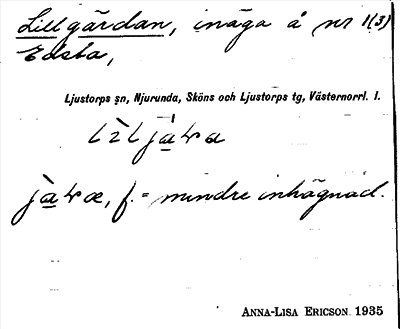 Lillgärdan, inäga å nr 1(3)
Edsta,
Ljustorps sn, Njurunda, Sköns och Ljustorps tg, Västernorrl. l.
f. = mindre inhägnad.
ANNA-LISA ERICSON. 1935